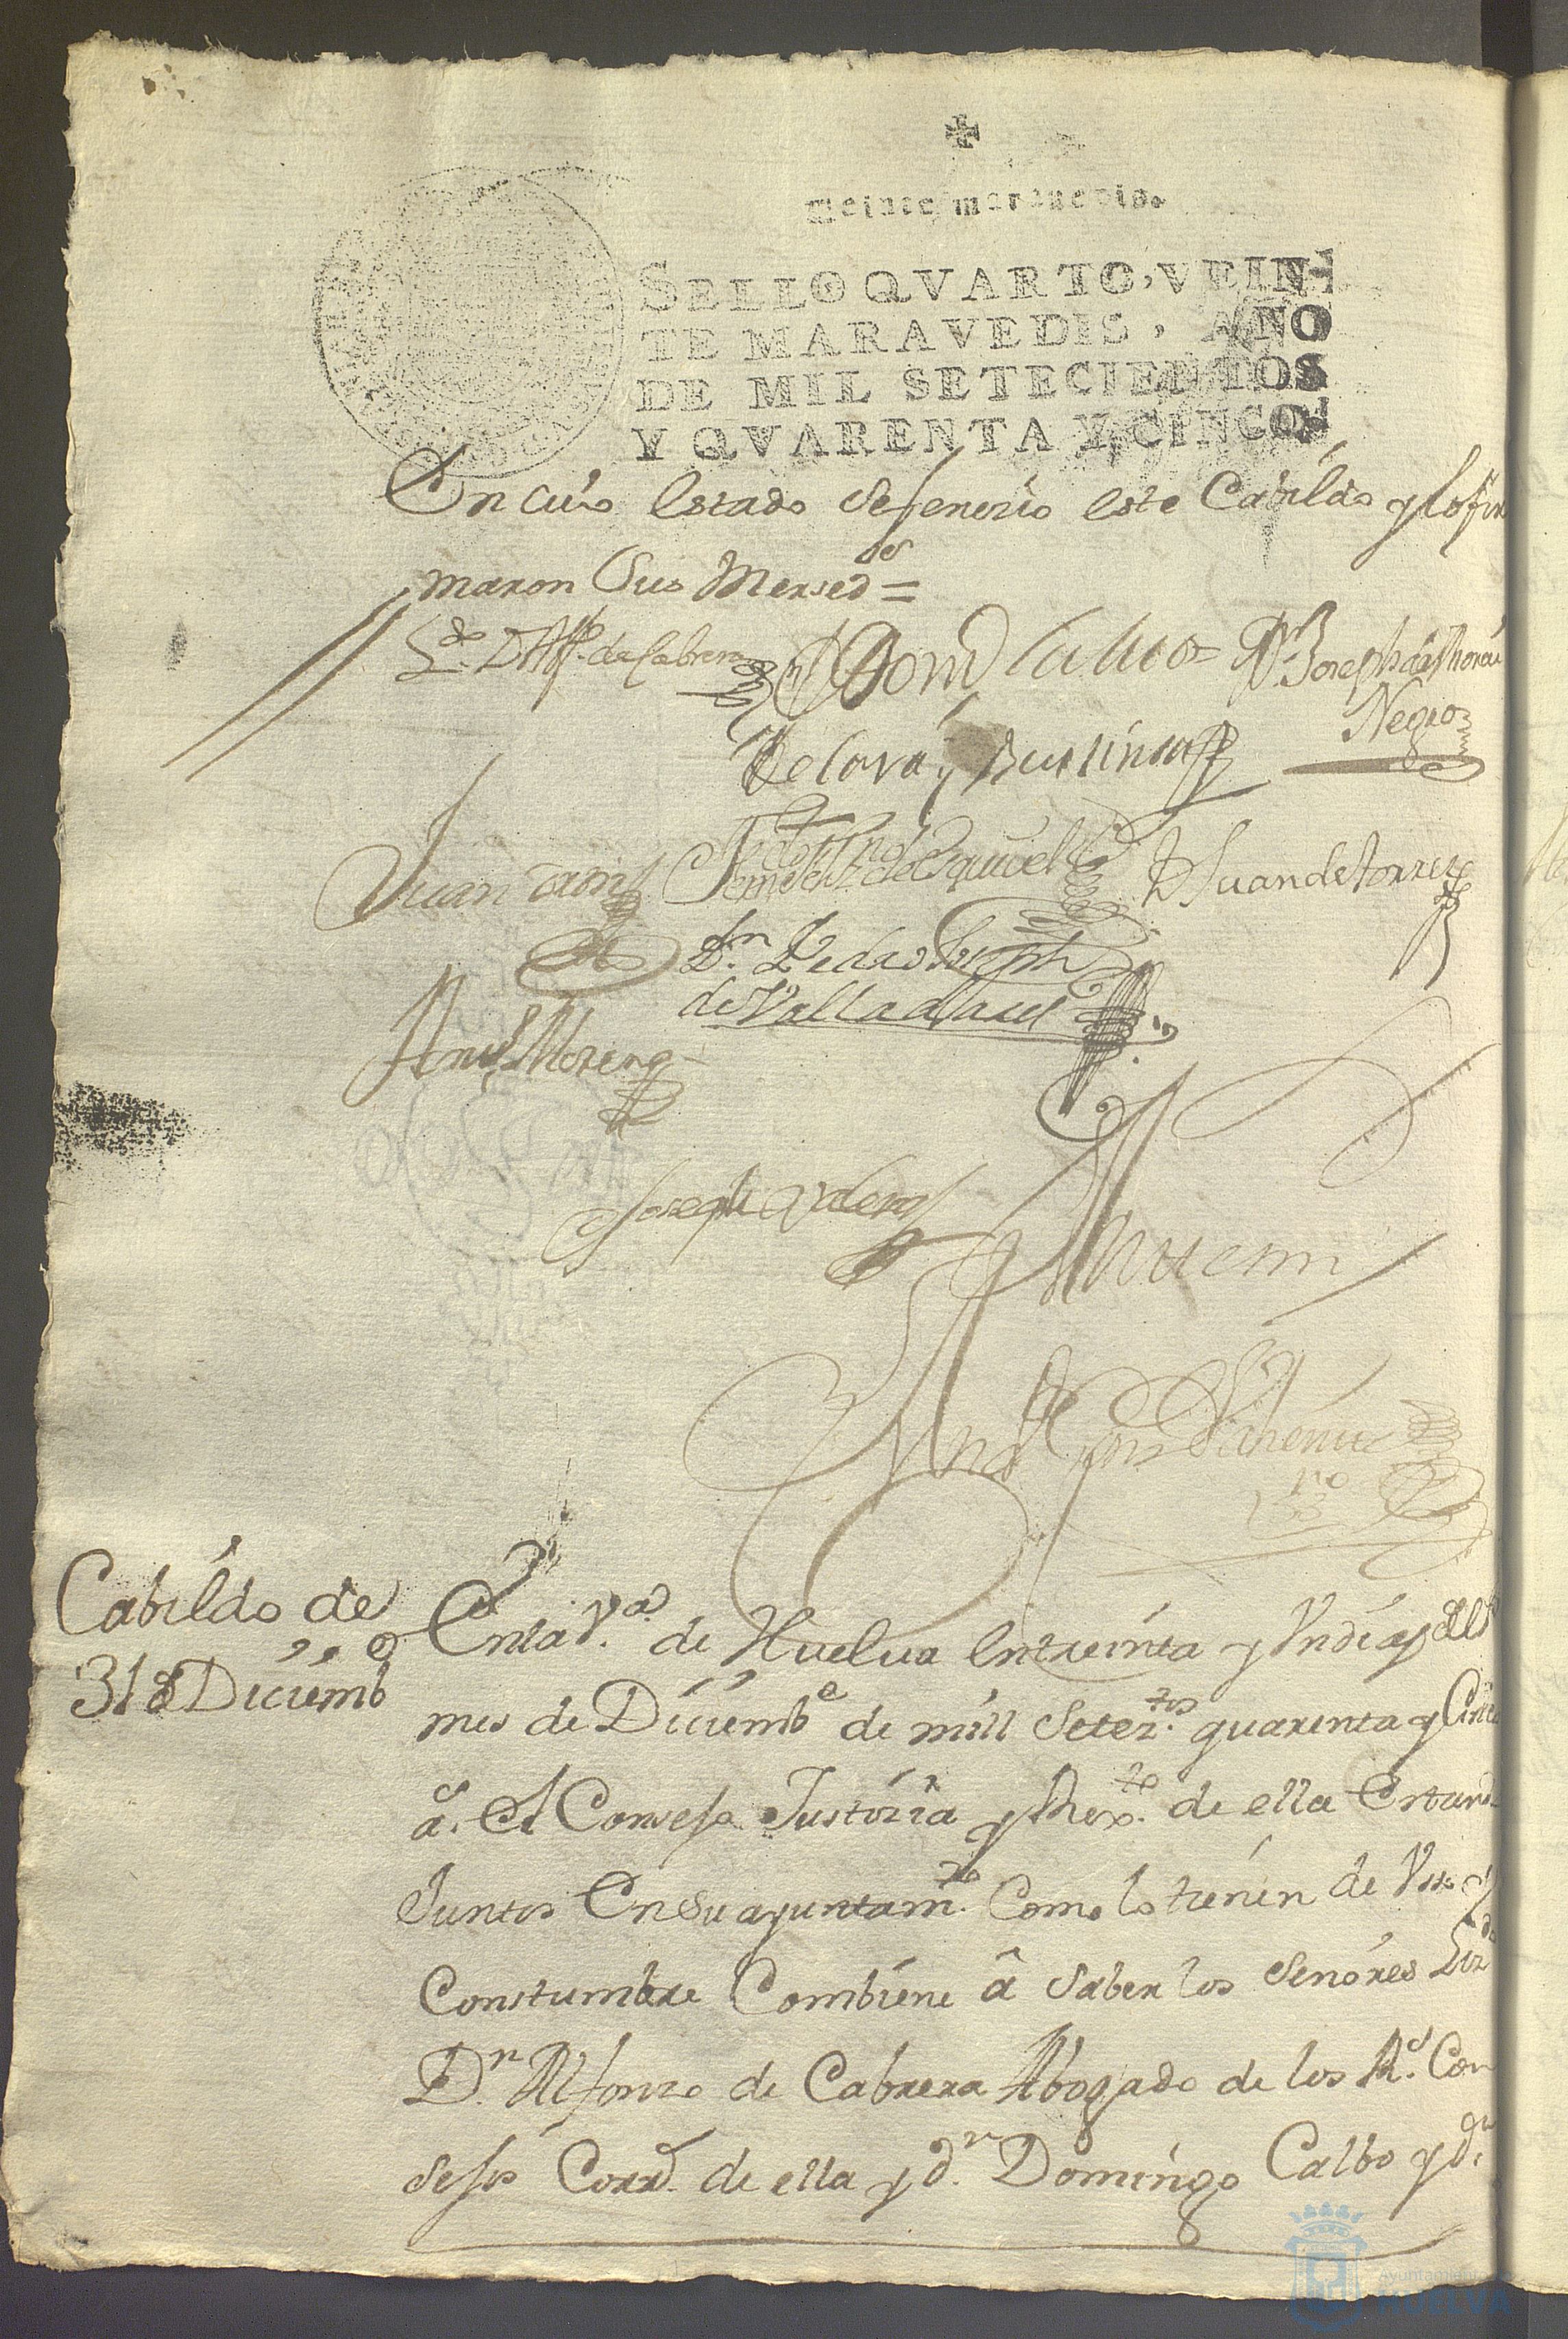 Veinte maravedis.
SELLO QVARTO, VEIN-
TE MARAVEDIS, AÑO
DE MIL SETECIENTOS
Y QVARENTA Y CINCO.
En cuio estado sefenecio este Cabildo y lo fir
maron Sus Mersed.es =
L.do D. Alf.o de Cabrera
Dom.o Calvo
D.n Joseph de Moran
Negro
De Lora y
Juan
de Esquivel
D Juan de torres
D.n Pedro Joseph
de Valladares
Moreno
Joseph
Antemi
Cabildo de
31 de Diciemb.e
En la V.a de Huelva en treinta y un dias del
mes de Diciemb.e de mill Setez.tos quarenta y Cinco
a.s el Consejo Justizia y Rex.to de ella Estand
Juntos En su ayuntam.to Como lo tienen de Uso y
Constumbre Combiene â Saber los Señores Liz.do
D.n Alfonso de Cabrera Abogado de los R.s Con
sejos Corr.r de ella y d.n Domingo Calbo y d.n
Ayuntamiento
HUELVA